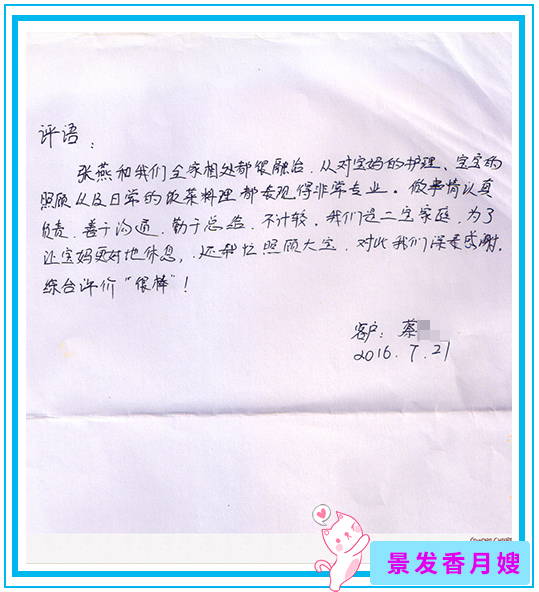 评语：
张燕和我们全家相处都很融洽，从对宝妈的护理、宝宝的
照顾以及日常的饭菜料理都表现得非常专业。做事情认真
负责，善于沟通，勤于总结，不计较，我们是二宝家庭，为了
让宝妈更好地休息，还帮忙照顾大宝，对此我们深表感谢。
综合评价“很棒”！
客户：蔡
2016.7.21
景发香月嫂